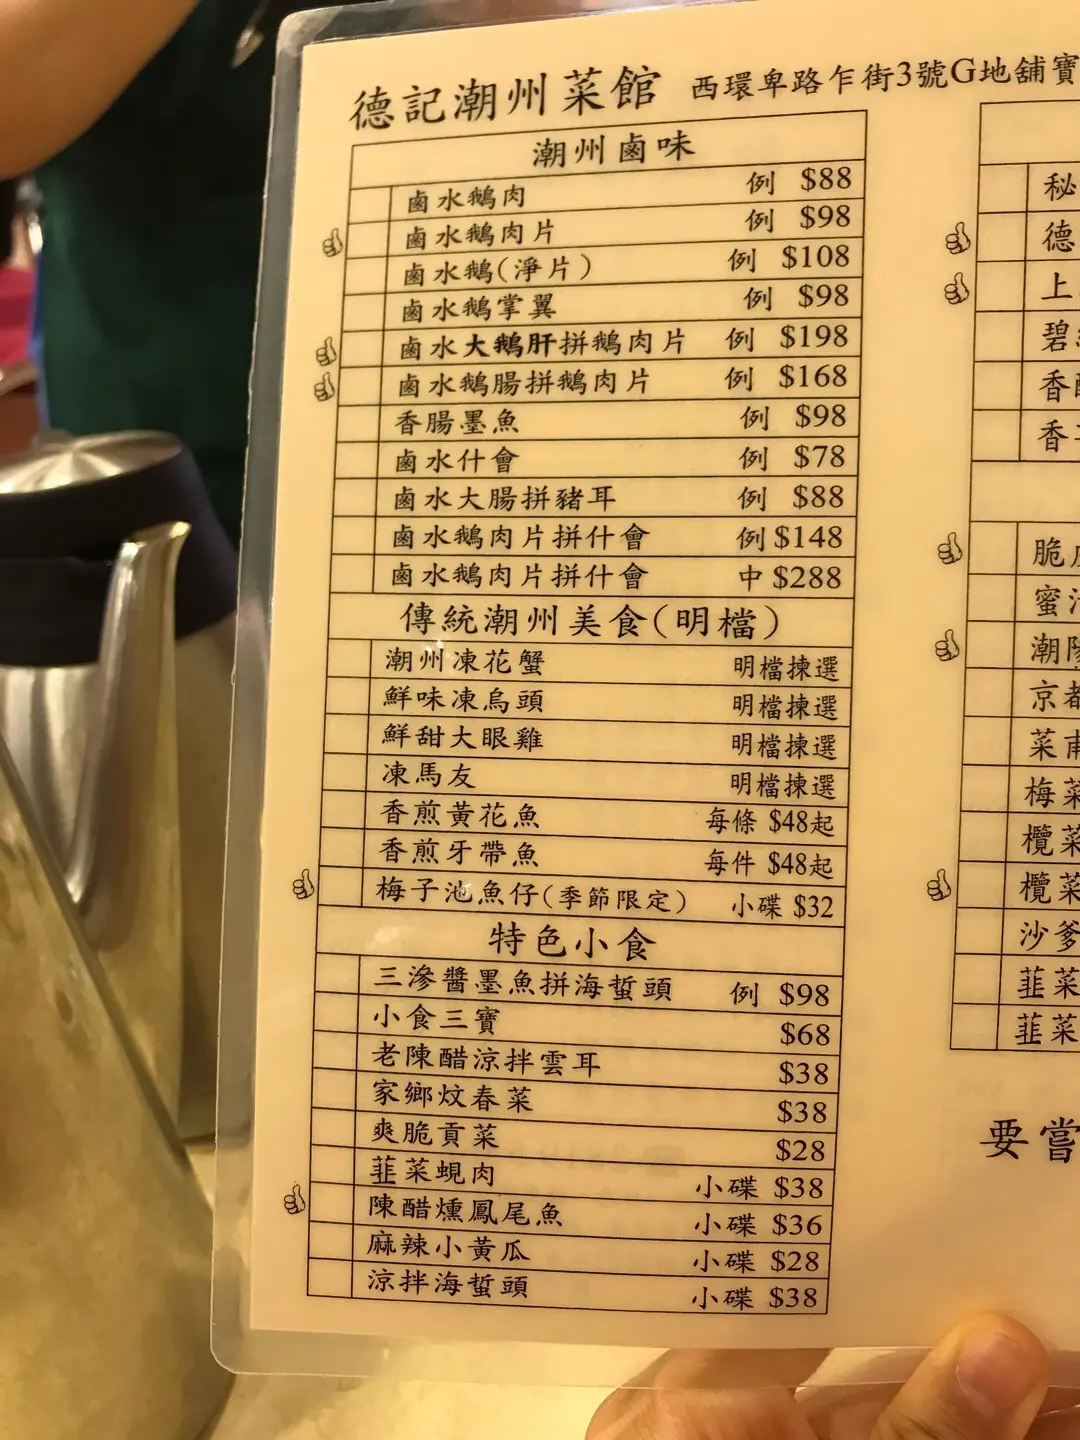 德記潮州菜館 西環卑路乍街3號G地舖寶
潮州鹵味
鹵水鵝肉 例 $88
鹵水鵝肉片 例 $98
鹵水鵝(淨片) 例 $108
鹵水鵝掌翼 例 $98
鹵水大鵝肝拼鵝肉片 例 $198
鹵水鵝腸拼鵝肉片 例 $168
香腸墨魚 例 $98
鹵水什會 例 $78
鹵水大腸拼豬耳 例 $88
鹵水鵝肉片拼什會 例 $148
鹵水鵝肉片拼什會 中 $288
傳統潮州美食(明檔)
潮州凍花蟹 明檔揀選
鮮味凍烏頭 明檔揀選
鮮甜大眼雞 明檔揀選
凍馬友 明檔揀選
香煎黃花魚 每條 $48起
香煎牙帶魚 每件 $48起
梅子池魚仔(季節限定) 小碟 $32
特色小食
三滲醬墨魚拼海蜇頭 例 $98
小食三寶 $68
老陳醋涼拌雲耳 $38
家鄉炆春菜 $38
爽脆貢菜 $28
韮菜蜆肉 小碟 $38
陳醋燻鳳尾魚 小碟 $36
麻辣小黃瓜 小碟 $28
涼拌海蜇頭 小碟 $38
秘
德
上
碧
香
香
脆
蜜
潮
京都
菜
梅菜
欖菜
欖菜
沙爹
韮菜
韮菜
要嘗